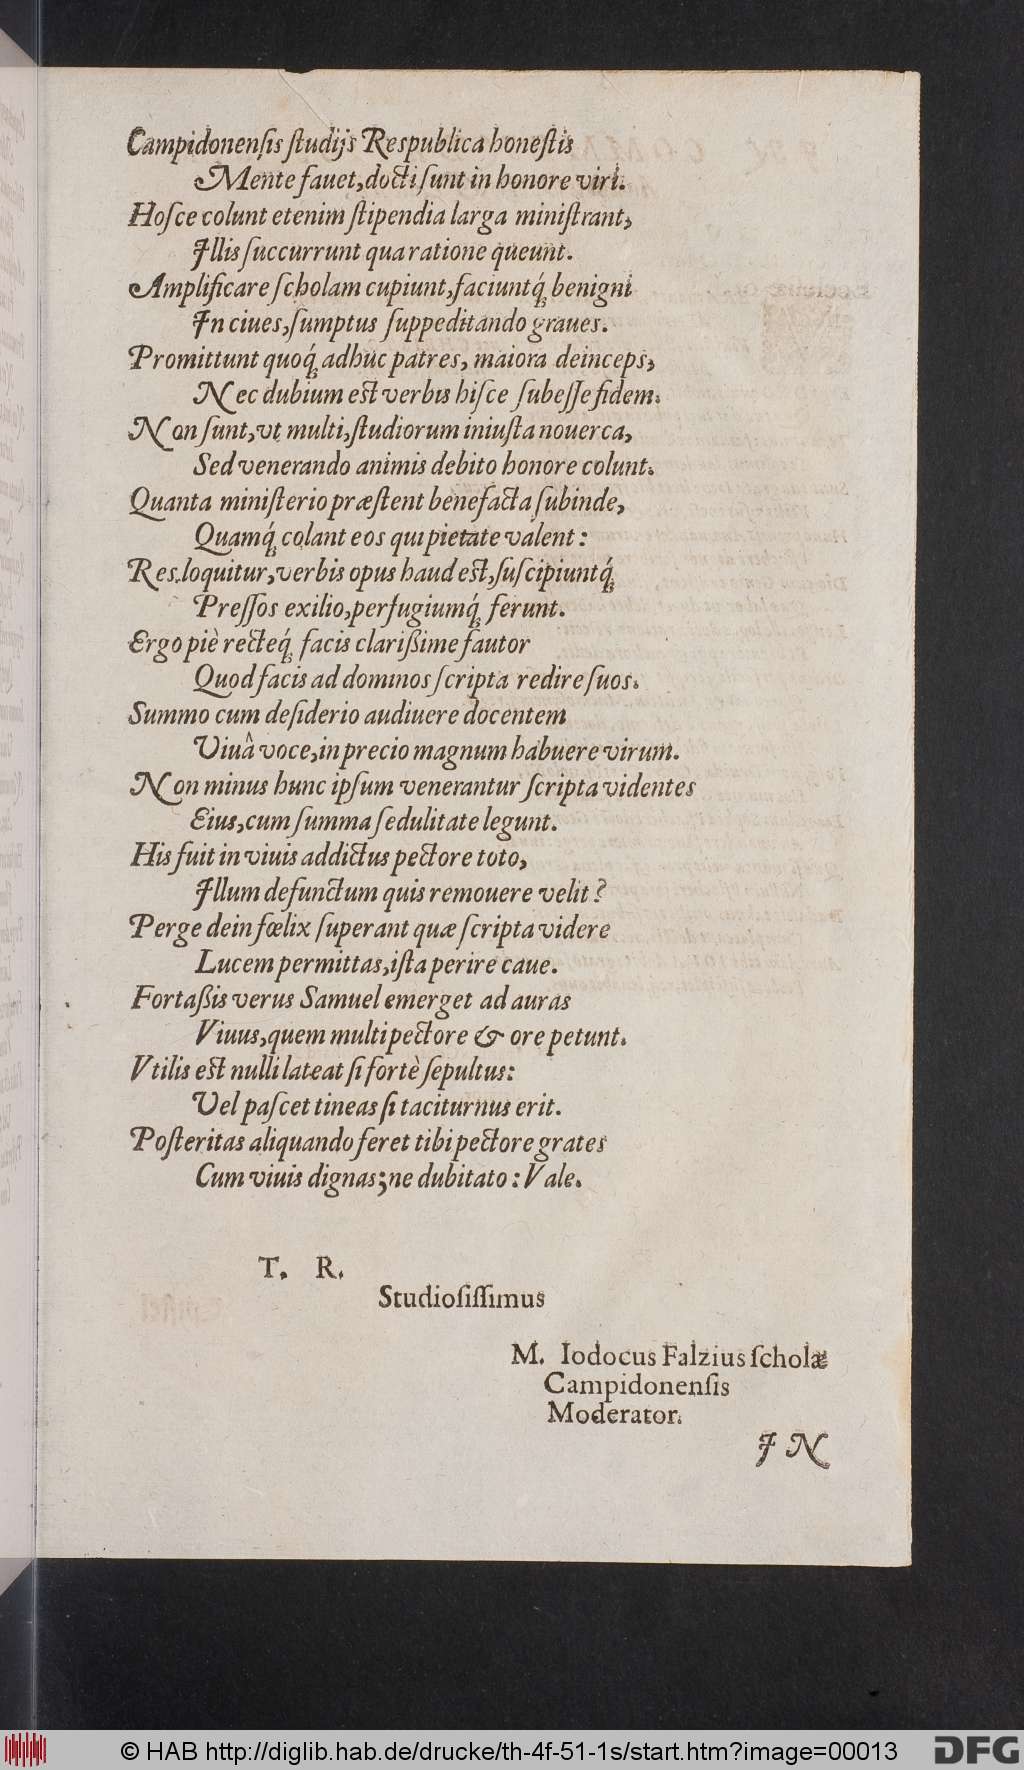 Campidonenſis ſtudijs Respublica honeſtis
Mente fauet, docti ſunt in honore viri.
Hoſce colunt etenim ſtipendia larga miniſtrant,
Illis ſuccurrunt qua ratione queunt.
Amplificare ſcholam cupiunt, faciuntq́ꝫ benigni
In ciues, ſumptus ſuppeditando graues.
Promittunt quoq́ꝫ adhuc patres, maiora deinceps,
Nec dubium eſt verbis hiſce ſubeſſe fidem.
Non ſunt, vt multi, ſtudiorum iniuſta nouerca,
Sed venerando animis debito honore colunt.
Quanta miniſterio præſtent benefacta ſubinde,
Quamq́ꝫ colant eos qui pietate valent:
Res loquitur, verbis opus haud eſt, ſuſcipiuntq́ꝫ
Preſſos exilio, perfugiumq́ꝫ ferunt.
Ergo piè recteq́ꝫ facis clarißime fautor
Quod facis ad dominos ſcripta redire ſuos.
Summo cum deſiderio audiuere docentem
Viuâ voce, in precio magnum habuere virum.
Non minus hunc ipſum venerantur ſcripta videntes
Eius, cum ſumma ſedulitate legunt.
His fuit in viuis addictus pectore toto,
Illum defunctum quis remouere velit?
Perge dein fœlix ſuperant quæ ſcripta videre
Lucem permittas, iſta perire caue.
Fortaßis verus Samuel emerget ad auras
Viuus, quem multi pectore & ore petunt.
Vtilis eſt nulli lateat ſi fortè ſepultus:
Vel paſcet tineas ſi taciturnus erit.
Poſteritas aliquando feret tibi pectore grates
Cum viuis dignas; ne dubitato: Vale.
T. R.
Studioſiſſimus
M. Iodocus Falzius ſcholæ
Campidonenſis
Moderator.
IN
© HAB http://diglib.hab.de/drucke/th-4f-51-1s/start.htm?image=00013
DFG